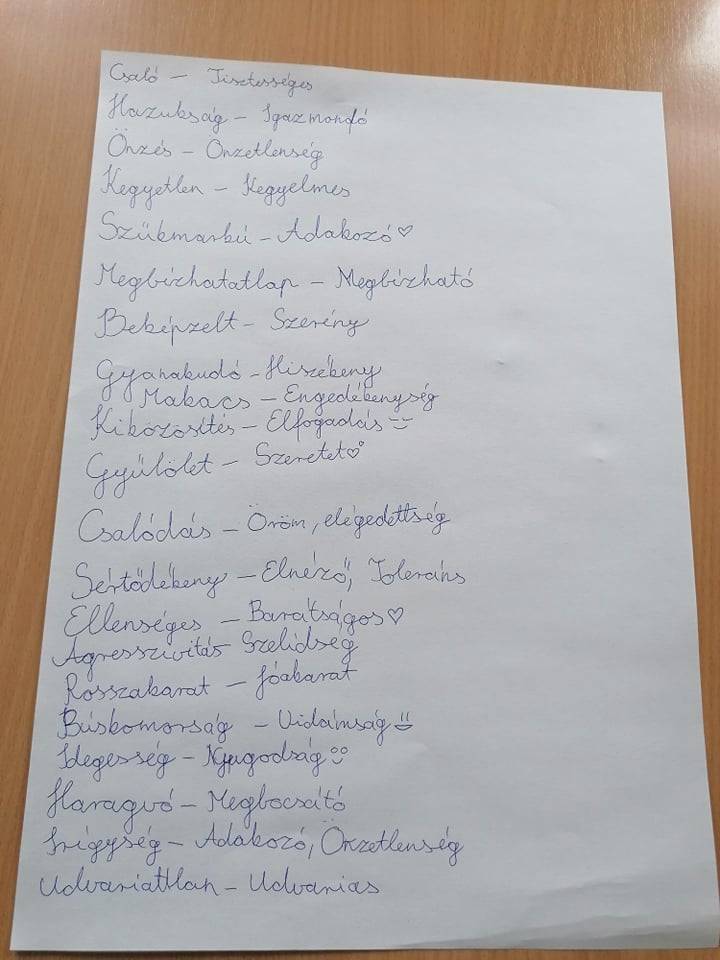 Csaló – Tisztességes
Hazukság – Igazmondó
Önzés – Önzetlenség
Kegyetlen – Kegyelmes
Szükmarkú – Adakozó♡
Megbízhatatlap – Megbízható
Beképzelt – Szerény
Gyanakudó – Hiszékeny
Makacs – Engedékenység
Kiközösítés – Elfogadás
Gyűlölet – Szeretet♡
Csalódás – Öröm, elégedettség
Sértődékeny – Elnéző, Toleráns
Ellenséges – Barátságos♡
Agresszivitás Szelídség
Rosszakarat – Jóakarat
Búskomorság – Vidámság
Idegesség – Nyugodság
Haragvó – Megbocsátó
Irigység – Adakozó, Önzetlenség
Udvariatlan – Udvarias